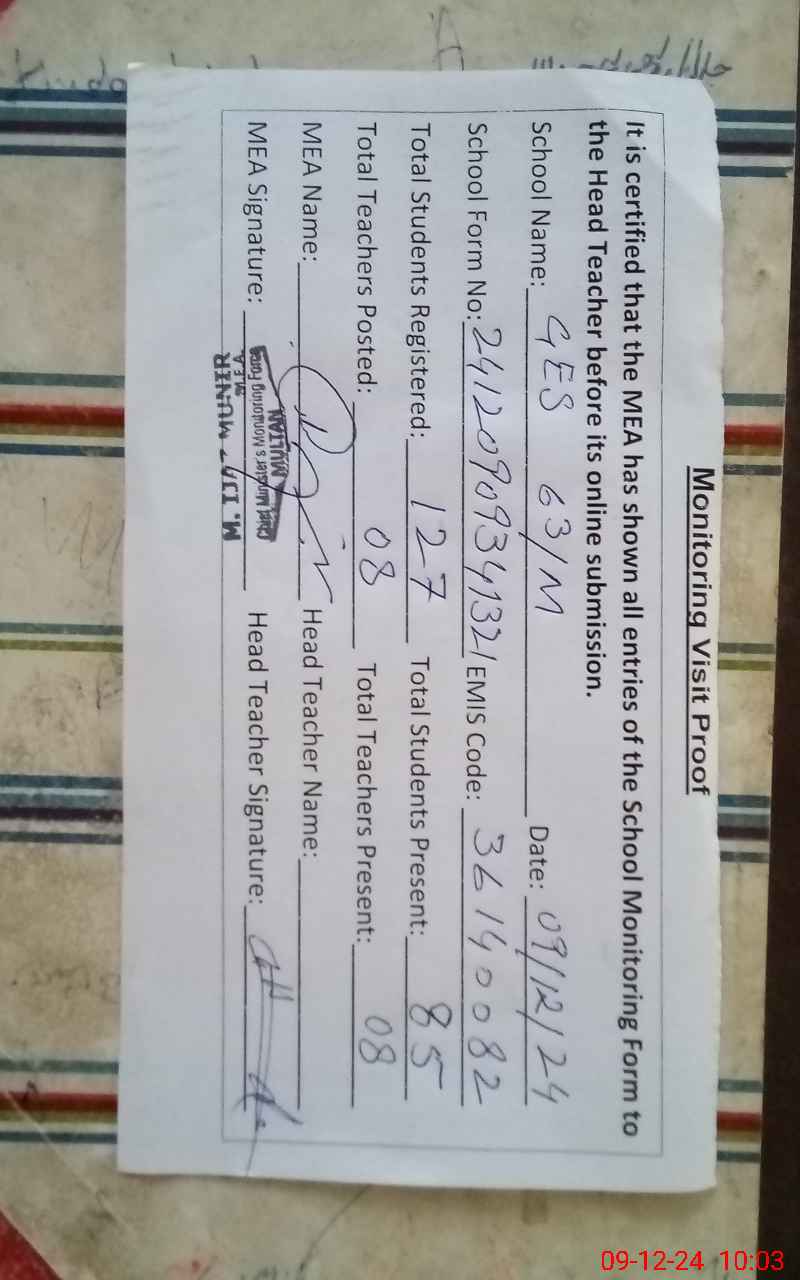 Monitoring Visit Proof
It is certified that the MEA has shown all entries of the School Monitoring Form to
the Head Teacher before its online submission.
School Name: GES 63/M Date: 09/12/24
School Form No: 2412090934132/ EMIS Code: 36140082
Total Students Registered: 127 Total Students Present: 85
Total Teachers Posted: 08 Total Teachers Present: 08
MEA Name: Head Teacher Name:
MEA Signature: Head Teacher Signature:
M. IJA- MUNIR
M.E.A.
Chief Minister's Monitoring Force
MULTAN
09-12-24 10:03